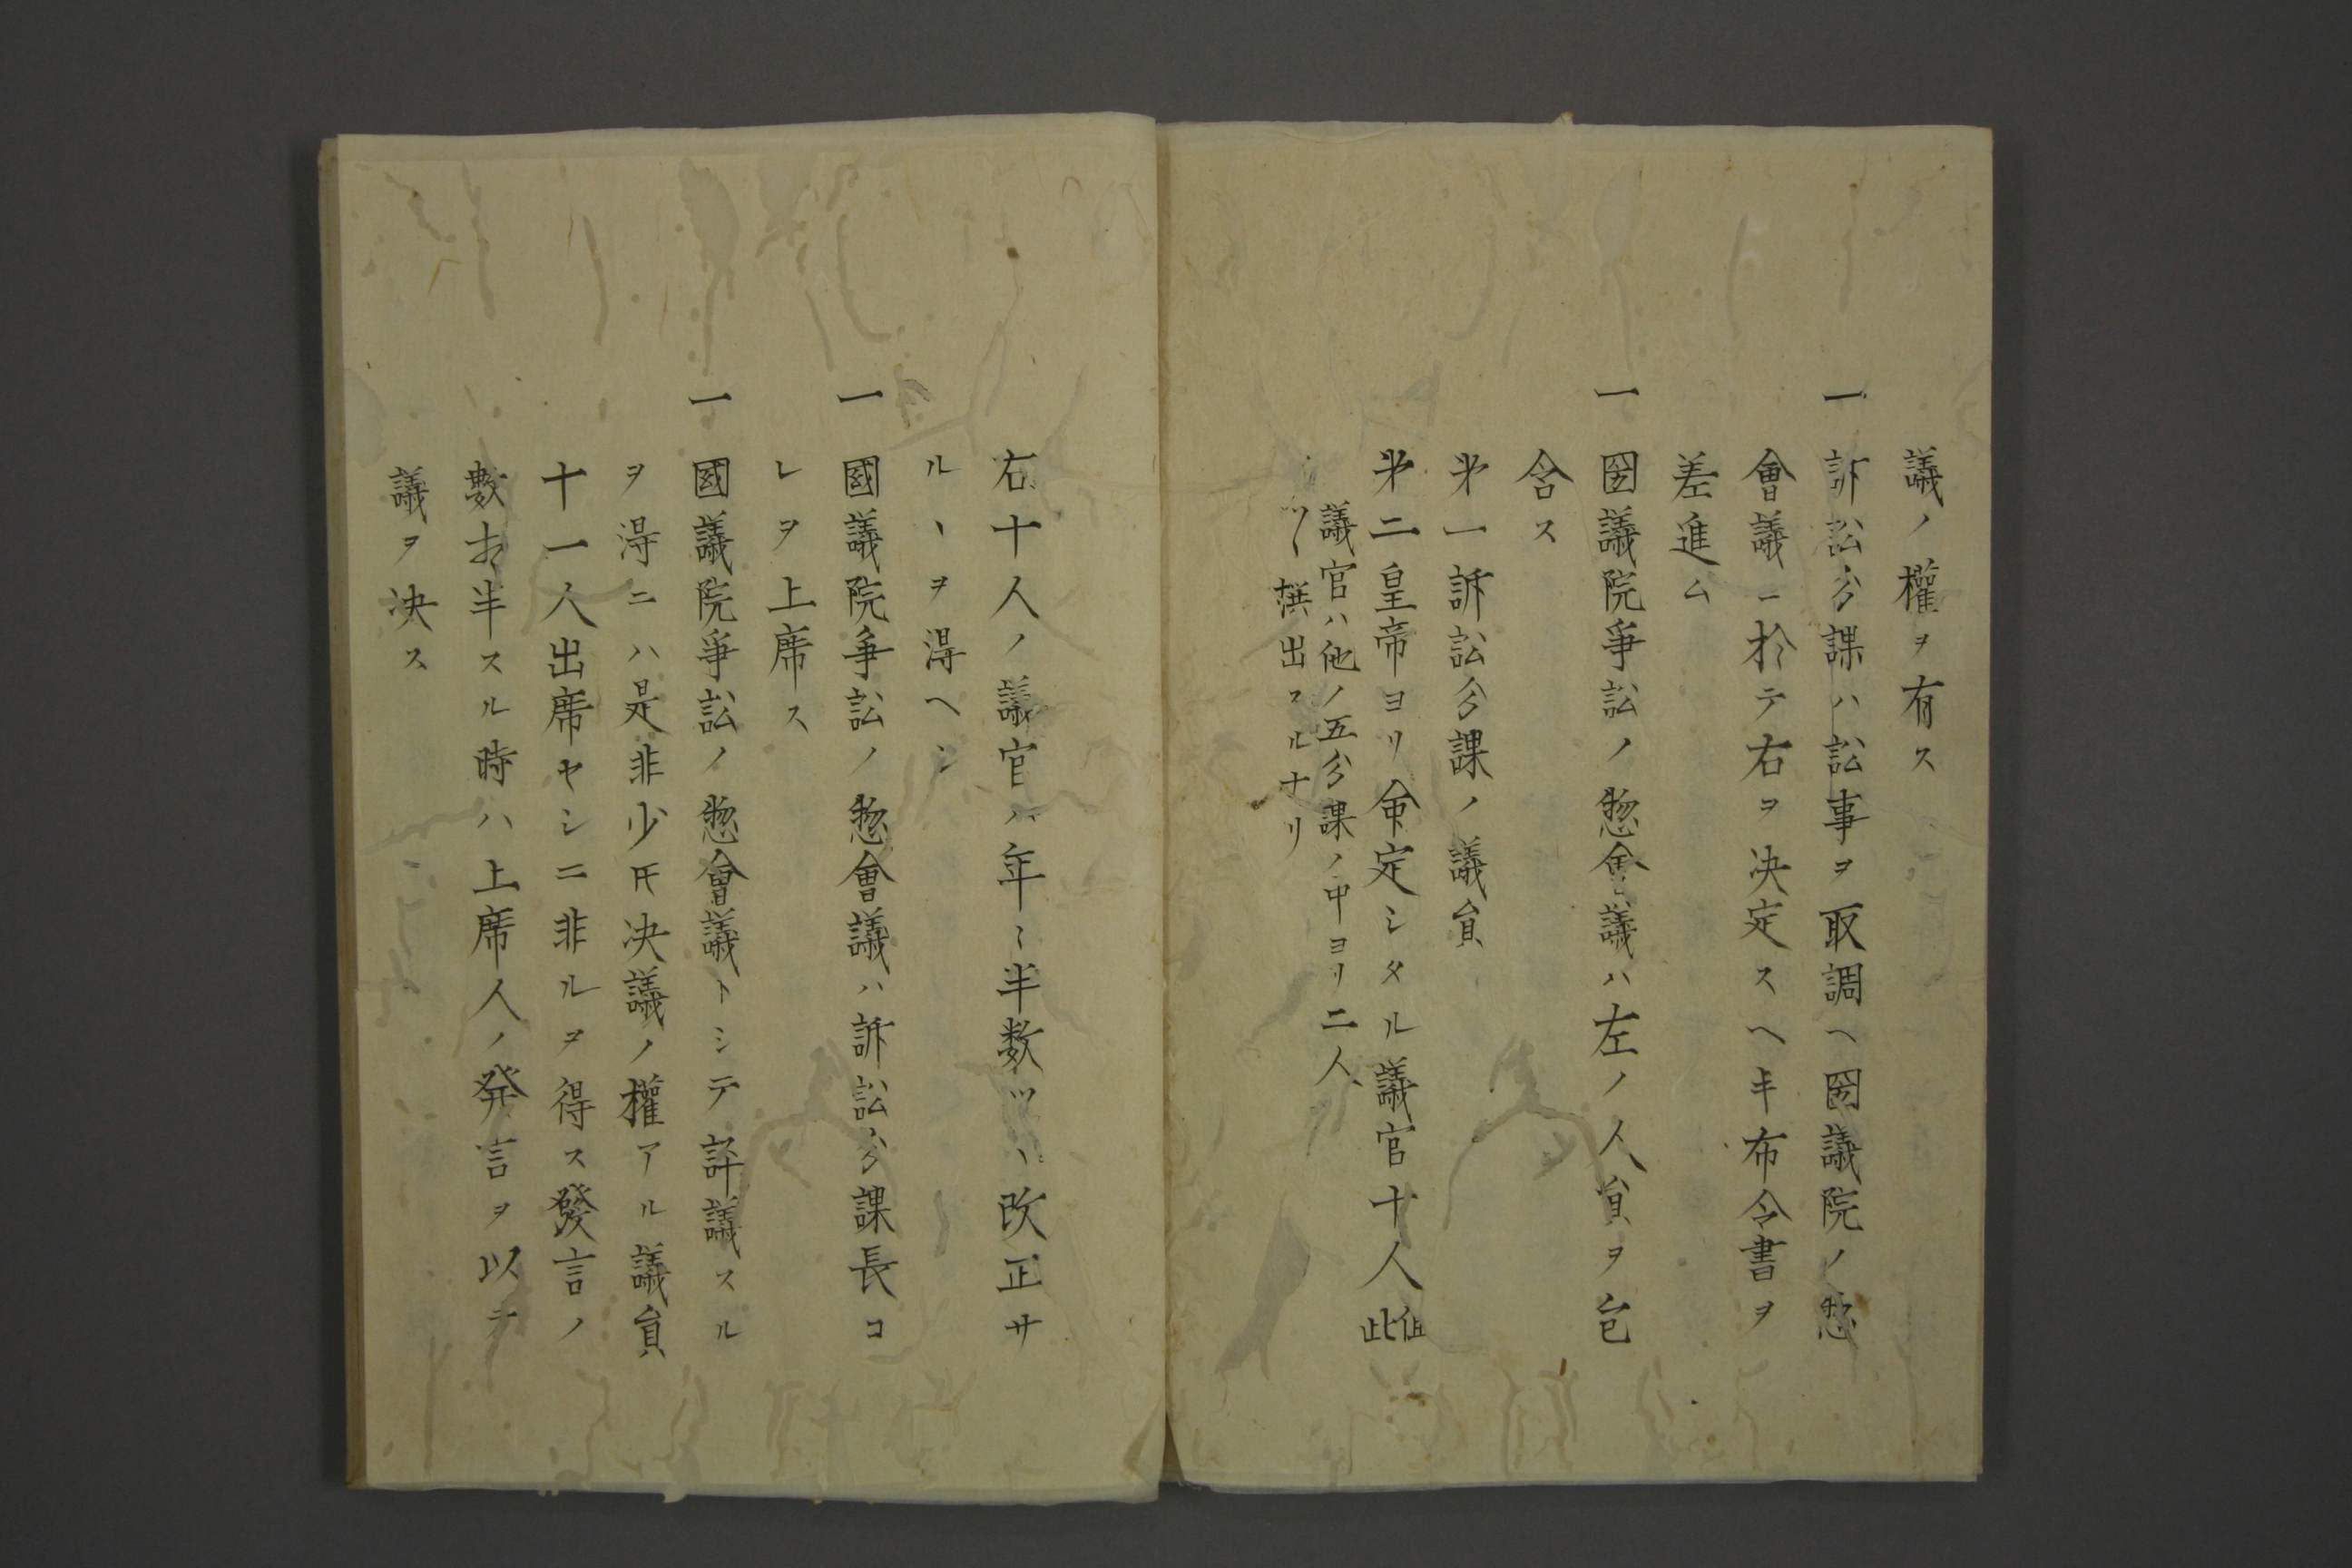 議ノ權ヲ有ス
一訴訟分課ハ訟事ヲ取調ヘ國議院ノ惣
會議ニ於テ右ヲ決定スヘキ布令書ヲ
差進ム
一國議院爭訟ノ惣會議ハ左ノ人員ヲ包
含ス
㐧一訴訟分課ノ議員
㐧二皇帝ヨリ命定シタル議官十人但此
議官ハ他ノ五分課ノ中ヨリ二人
ツヽ撰出スルナリ
右十人ノ議官ハ年〻半数ツヽ改正サ
ルヽヲ得ヘシ
一國議院爭訟ノ惣會議ハ訴訟分課長コ
レヲ上席ス
一國議院爭訟ノ惣會議トシテ評議スル
ヲ得ニハ是非少𪜈决議ノ權アル議員
十一人出席セシニ非ルヲ得ス發言ノ
數相半スル時ハ上席人ノ発言ヲ以テ
議ヲ决ス